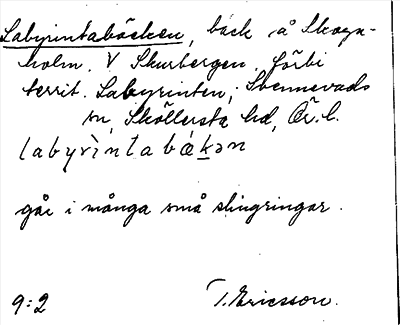 Labyrintabäcken, bäck å Skaga-
holm. V Skurbergen. förbi
territ. Labyrinten; Svennevads
sn, Sköllersta hd, Ör. l.
labyrìntabäkən
går i många små slingringar.
9:2 T. Ericsson.